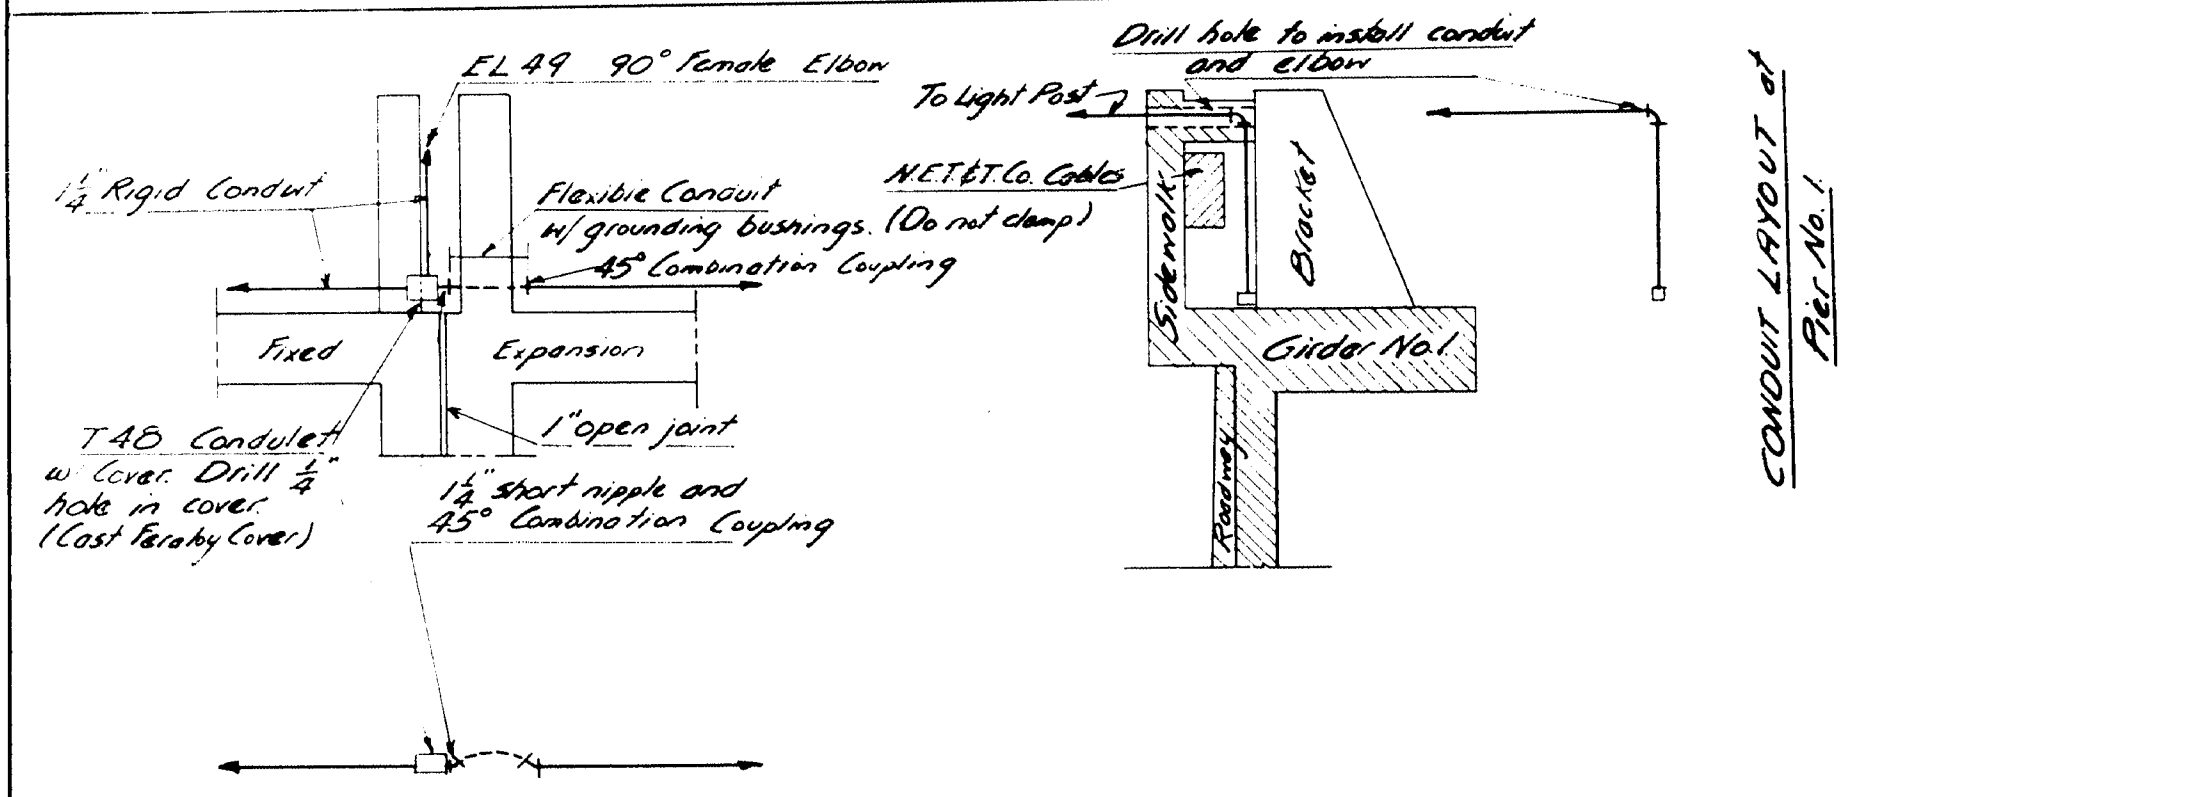 EL 49 90° Female Elbow
1 1/4" Rigid Conduit
Flexible Conduit
w/ grounding bushings. (Do not clamp)
45° Combination Coupling
Fixed
Expansion
T48 Condulet
w Cover. Drill 1/4"
hole in cover.
(Cast Feraloy Cover)
1" open joint
1 1/4" short nipple and
45° Combination Coupling
Drill hole to install conduit
and elbow
To Light Post
N.E.T.&T.Co. Cables
Sidewalk
Bracket
Girder No.1
Roadway
CONDUIT LAYOUT at
Pier No. 1.